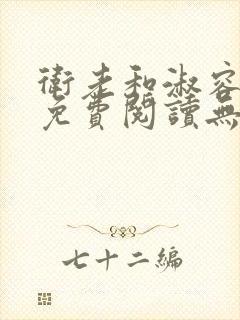 衛走和淑容
免費閱讀無
七十二編